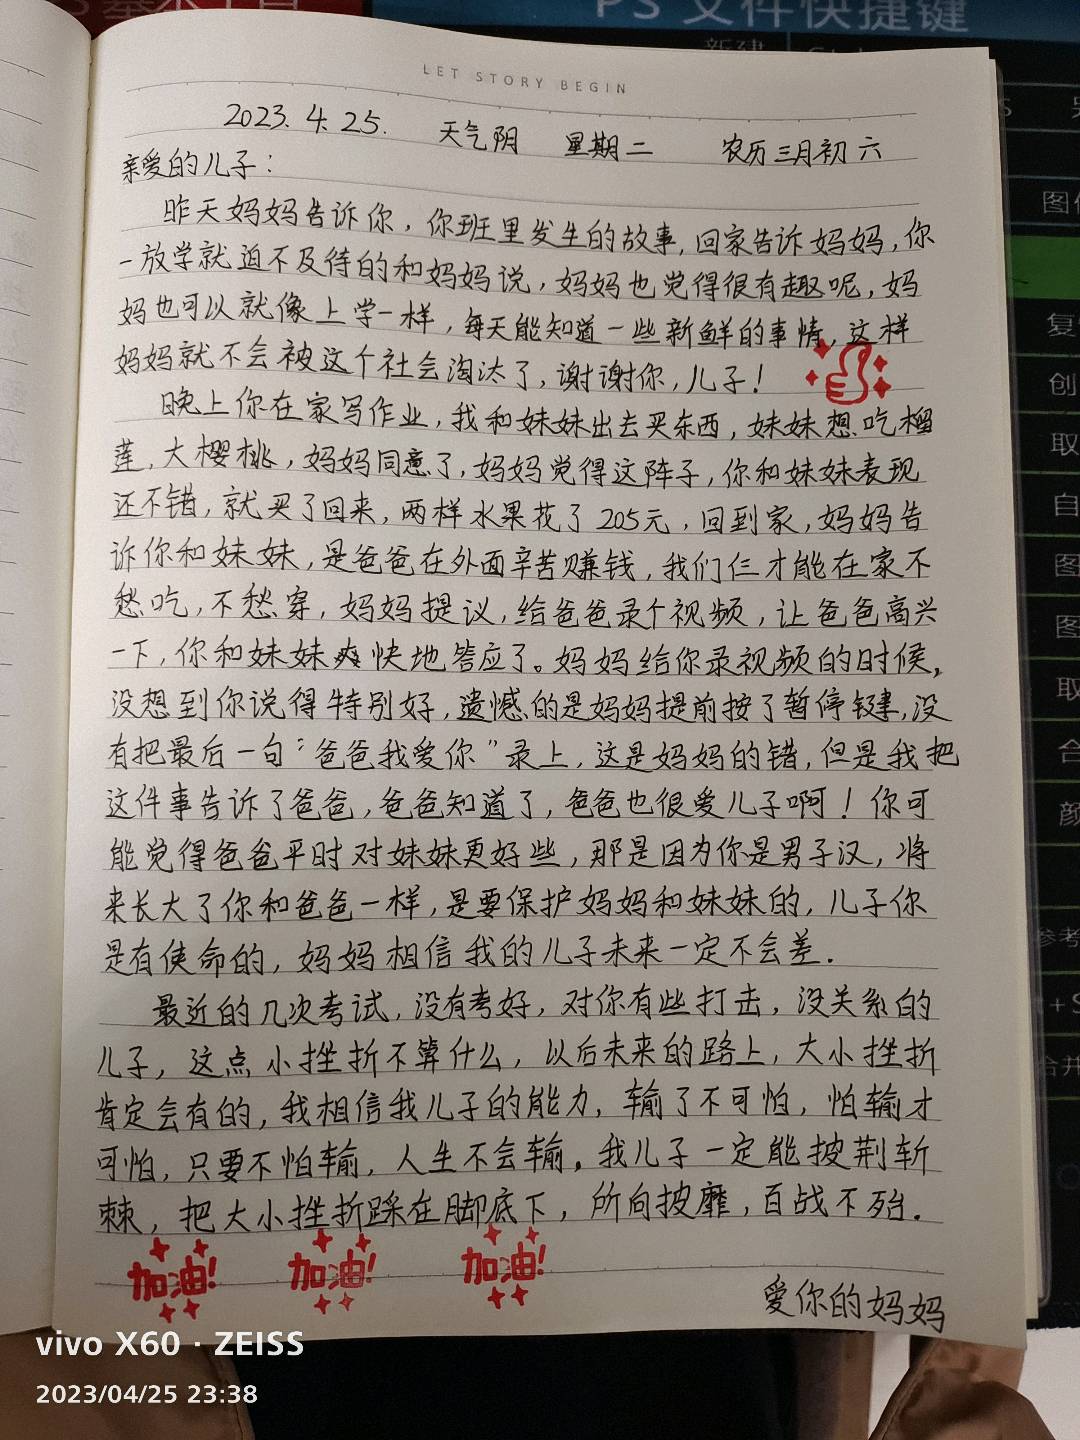 PS 文件快捷键
LET STORY BEGIN
2023.4.25. 天气阴 星期二 农历三月初六
亲爱的儿子：
昨天妈妈告诉你，你班里发生的故事,回家告诉妈妈,你
一放学就迫不及待的和妈妈说，妈妈也觉得很有趣呢，妈
妈也可以就像上学一样，每天能知道一些新鲜的事情,这样
妈妈就不会被这个社会淘汰了,谢谢你,儿子！
晚上你在家写作业，我和妹妹出去买东西，妹妹想吃榴
莲,大樱桃，妈妈同意了,妈妈觉得这阵子,你和妹妹表现
还不错，就买了回来，两样水果花了205元，回到家，妈妈告
诉你和妹妹，是爸爸在外面辛苦赚钱，我们仨才能在家不
愁吃,不愁穿，妈妈提议,给爸爸录个视频，让爸爸高兴
一下,你和妹妹爽快地答应了。妈妈给你录视频的时候,
没想到你说得特别好,遗憾的是妈妈提前按了暂停键,没
有把最后一句“爸爸我爱你”录上,这是妈妈的错,但是我把
这件事告诉了爸爸,爸爸知道了,爸爸也很爱儿子啊！你可
能觉得爸爸平时对妹妹更好些，那是因为你是男子汉，将
来长大了你和爸爸一样,是要保护妈妈和妹妹的,儿子你
是有使命的，妈妈相信我的儿子未来一定不会差.
最近的几次考试,没有考好，对你有些打击，没关系的
儿子，这点小挫折不算什么，以后未来的路上，大小挫折
肯定会有的,我相信我儿子的能力,输了不可怕，怕输才
可怕,只要不怕输,人生不会输。我儿子一定能披荆斩
棘，把大小挫折踩在脚底下，所向披靡,百战不殆.
加油! 加油! 加油!
爱你的妈妈
vivo X60 · ZEISS
2023/04/25 23:38